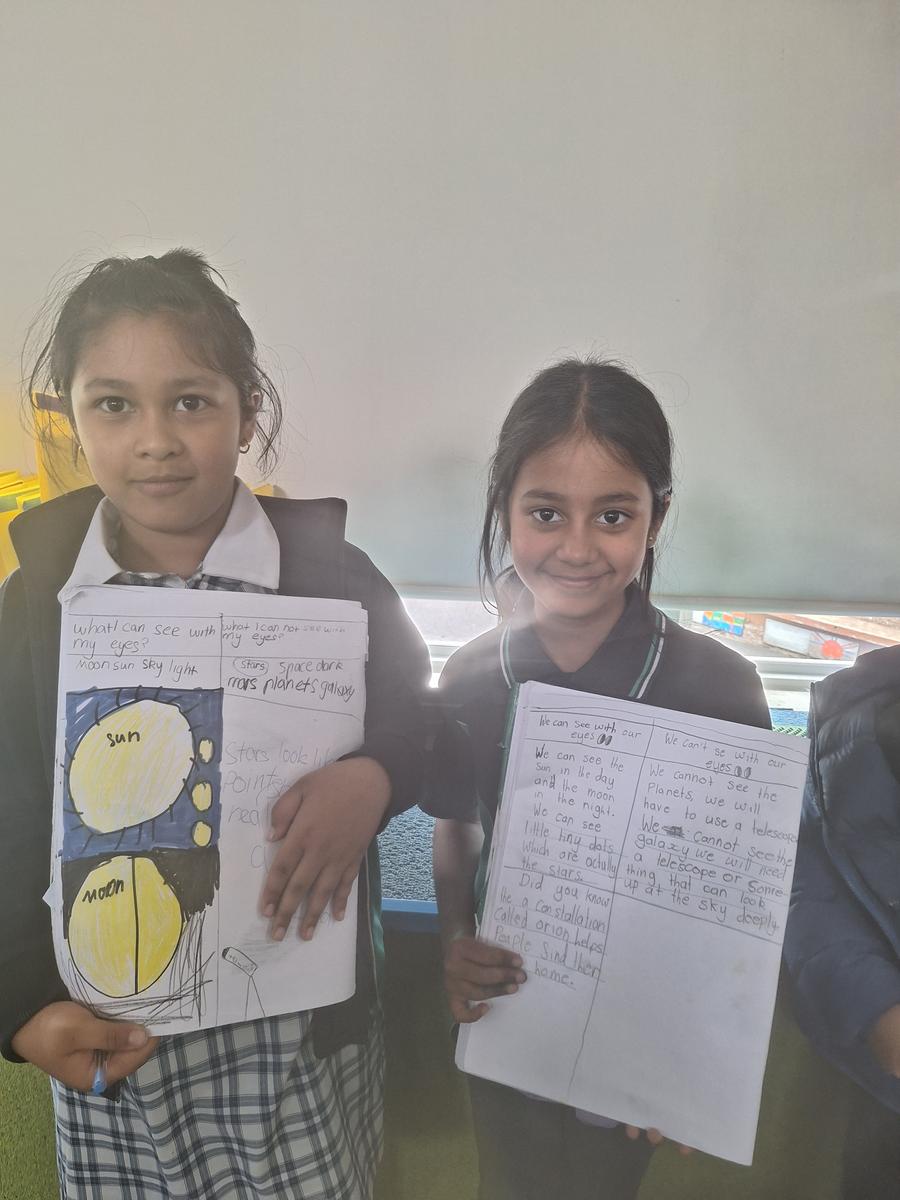 what I can see with
my eyes?
Moon sun sky light
sun
moon
what I can not see with
my eyes?
stars space dark
mars planets galaxy
Stars look
Pointy
We can see with our
eyes
We can see the
sun in the day
and the moon
in the night.
We can see
little tiny dots
which are actully
the stars.
Did you know
the a Constallation
called orion helps
People find their
home.
We can't se with our
eyes
We cannot see the
Planets, we will
have to use a telescope
We cannot see the
galaxy we will need
a telescope or some-
thing that can look
up at the sky deeply